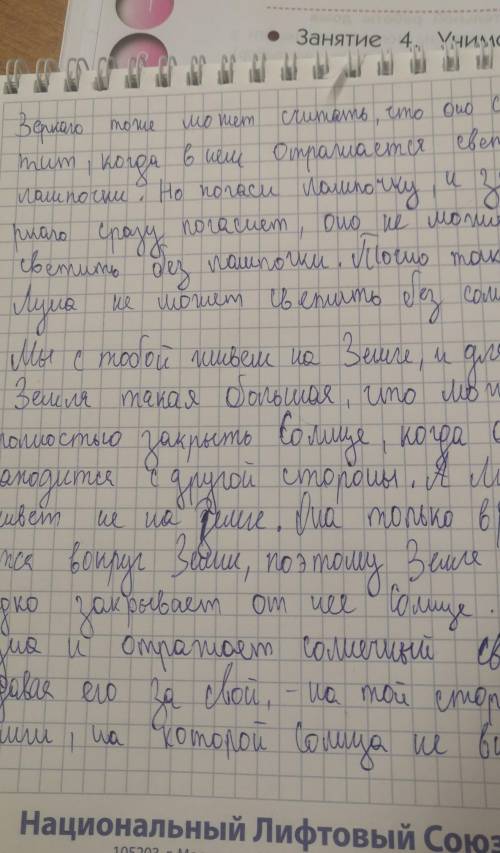 • Занятие 4. Учимс
Зеркало тоже может считать, что оно с
тит, когда в нем отражается свет
лампочки. Но погаси лампочку, и зе
ркало сразу погаснет, оно не може
светить без лампочки. Точно так
Луна не может светить без солн
Мы с тобой живем на Земле, и для
Земля такая большая, что мо
полностью закрыть Солнце, когда о
аходится с другой стороны. А Л
ивет не на Земле. Она только в
тся вокруг Земли, поэтому Земле
дко закрывает от нее Солнце.
уна и отражает солнечный св
давая его за свой, - на той стор
емли, на которой Солнца не ви
Национальный Лифтовый Союз